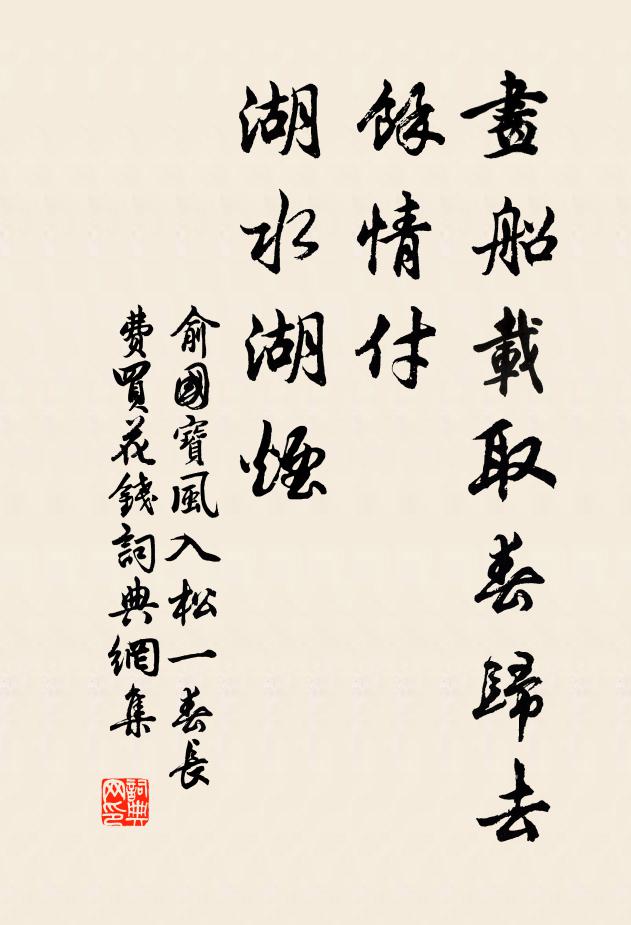 畫船載取春歸去
餘情付
湖水湖煙
俞國寶風入松一春長
費買花錢詞典網集
詞典网印